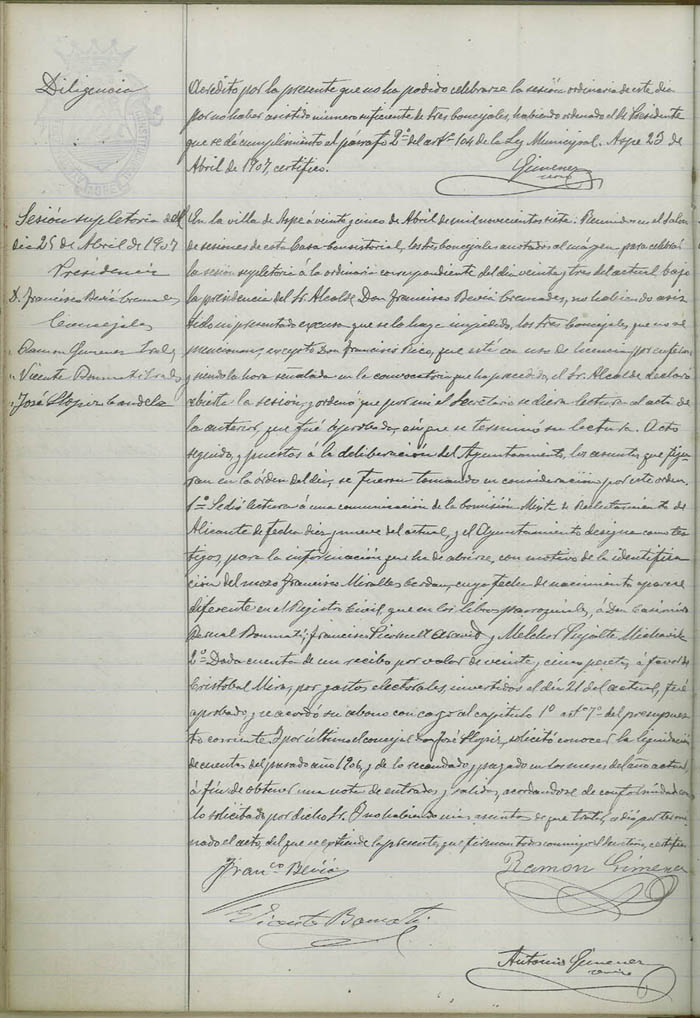 Diligencia
Acredito por la presente que no ha podido celebrarse la sesión ordinaria de este dia
por no haber asistido número suficiente de tres concejales, habiendo ordenado el Sr Presidente
que se dé cumplimiento al párrafo 2º del artº 104 de la Ley Municipal. Aspe 23 de
Abril de 1907, certifico.
Gimenez
Sesión supletoria del
dia 25 de Abril de 1907
Presidencia
D. Francisco Beviá Cremades
Concejales
" Ramon Gimenez
" Vicente Bonmati
" José Llopiz Candela
En la villa de Aspe á veinte y cinco de Abril de mil novecientos siete: Reunidos en el Salon
de sesiones de esta Casa Consistorial, los tres concejales anotados al margen para celebrar
la sesión supletoria á la ordinaria correspondiente del dia veinte y tres del actual, bajo
la presidencia del Sr. Alcalde Don Francisco Beviá Cremades, no habiendo asis
tido ni presentado excusa que se lo haga impedido, los tres Concejales que no se
mencionan, excepto Don Francisco Pico, que está con uso de licencia por enfermo,
y siendo la hora señalada en la convocatoria que ha precedido, el Sr. Alcalde declaró
abierta la sesión, y ordenó que por mi el Secretario se diera lectura al acta de
la anterior, que fué aprobada, asi que se terminó su lectura. Acto
seguido, y puestos á la deliberación del Ayuntamiento, los asuntos que figu
ran en la órden del dia, se fueron tomando en consideración por este orden.
1º Se dió lectura á una comunicación de la Comisión Mixta de Reclutamiento de
Alicante de fecha diez y nueve del actual, y el Ayuntamiento designa como tes
tigos, para la información que ha de abrirse, con motivo de la identifica
ción del mozo Francisco Miralles Cerdan, cuya fecha de nacimiento aparece
diferente en el Registro Civil, que en los libros parroquiales, á Don Casimiro
Bernal Bonmatí, Francisco y Melchor
2º Dada cuenta de un recibo por valor de veinte y cinco pesetas, á favor de
Cristobal Mira, por gastos electorales, invertidos el dia 21 del actual, fué
aprobado, y se acordó su abono con cargo al capitulo 1º artº 7º del presupues
to corriente. Y por último el concejal Don José Llopiz, solicitó conocer la liquidación
de cuentas del pasado año 1906, y de lo recaudado y pagado en los meses del año actual,
á fin de obtener una nota de entradas y salidas, acordandose de conformidad con
lo solicitado por dicho Sr. Y no habiendo mas asuntos de que tratar, se dió por termi
nado el acto, del que se extiende la presente, que firman todos conmigo el Secretario, certifico.
Francº Beviá
Ramon Gimenez
Vicente Bonmatí
Antonio Gimenez